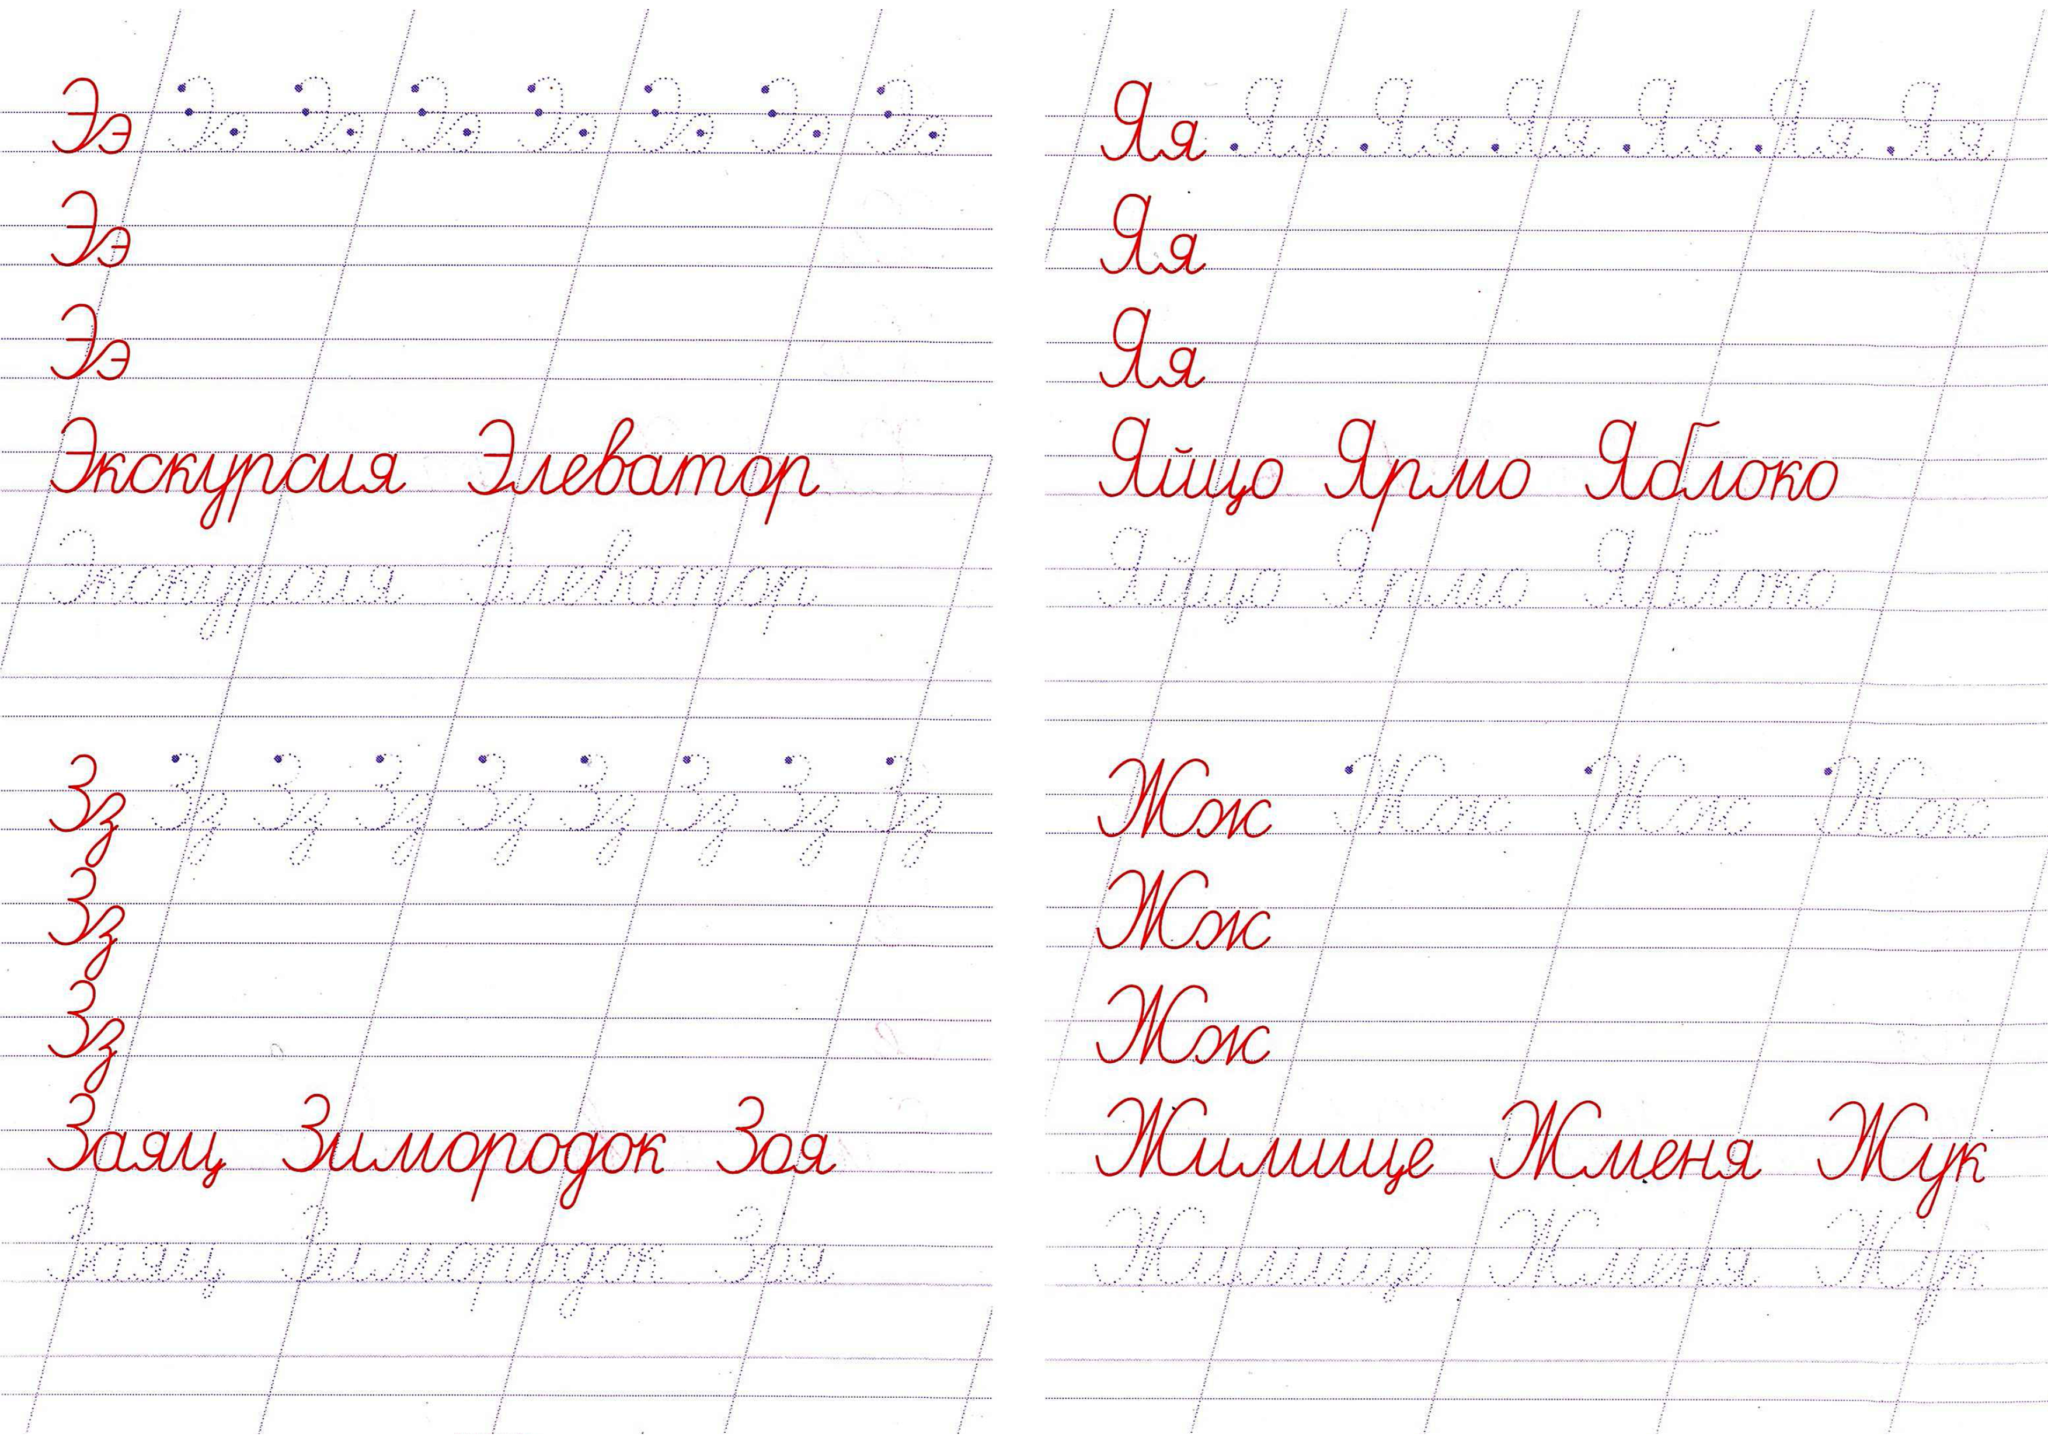 Ээ Ээ Ээ Ээ Ээ Ээ Ээ Ээ
Ээ
Ээ
Экскурсия Элеватор
Экскурсия Элеватор
Зз Зз Зз Зз Зз Зз Зз Зз Зз
Зз
Зз
Заяц Зимородок Зоя
Заяц Зимородок Зоя
Яя Яя Яя Яя Яя Яя Яя
Яя
Яя
Яйцо Ярмо Яблоко
Яйцо Ярмо Яблоко
Жж Жж Жж Жж
Жж
Жж
Жилище Жменя Жук
Жилище Жменя Жук